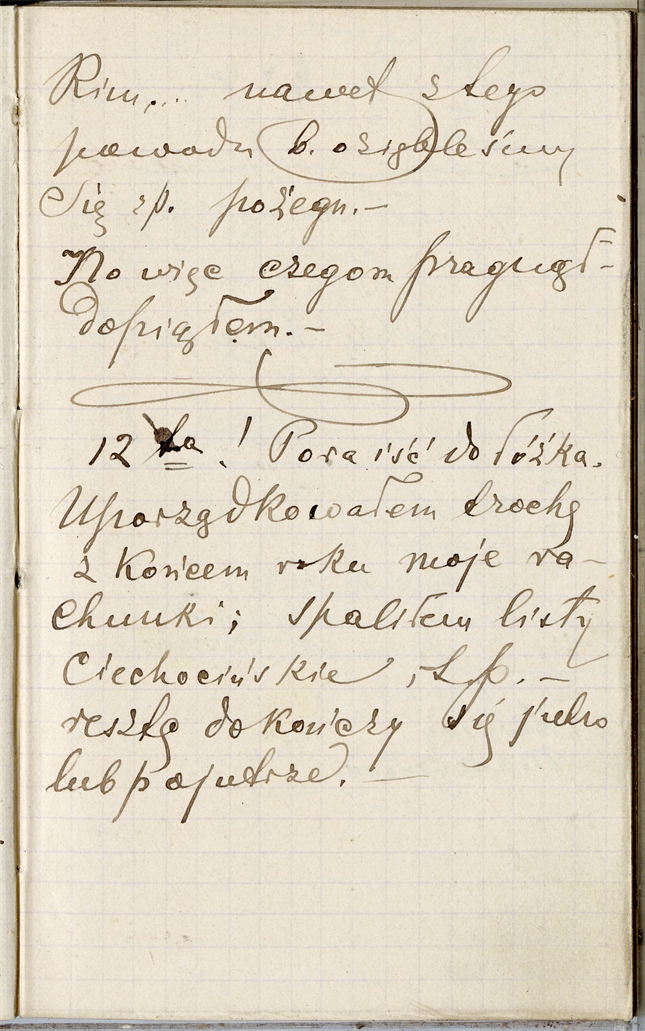 Rim.... nawet z tego
powodu b. oziębleśmy
się sp. pożegn.—
No więc czegom pragnął—
dopiąłem.—
12ta! Pora iść do łóżka.
Uporządkowałem trochę
z końcem roku moje ra-
chunki; spaliłem listy
Ciechocińskie i t. p. —
resztę dokończy się jutro
lub pojutrze. —